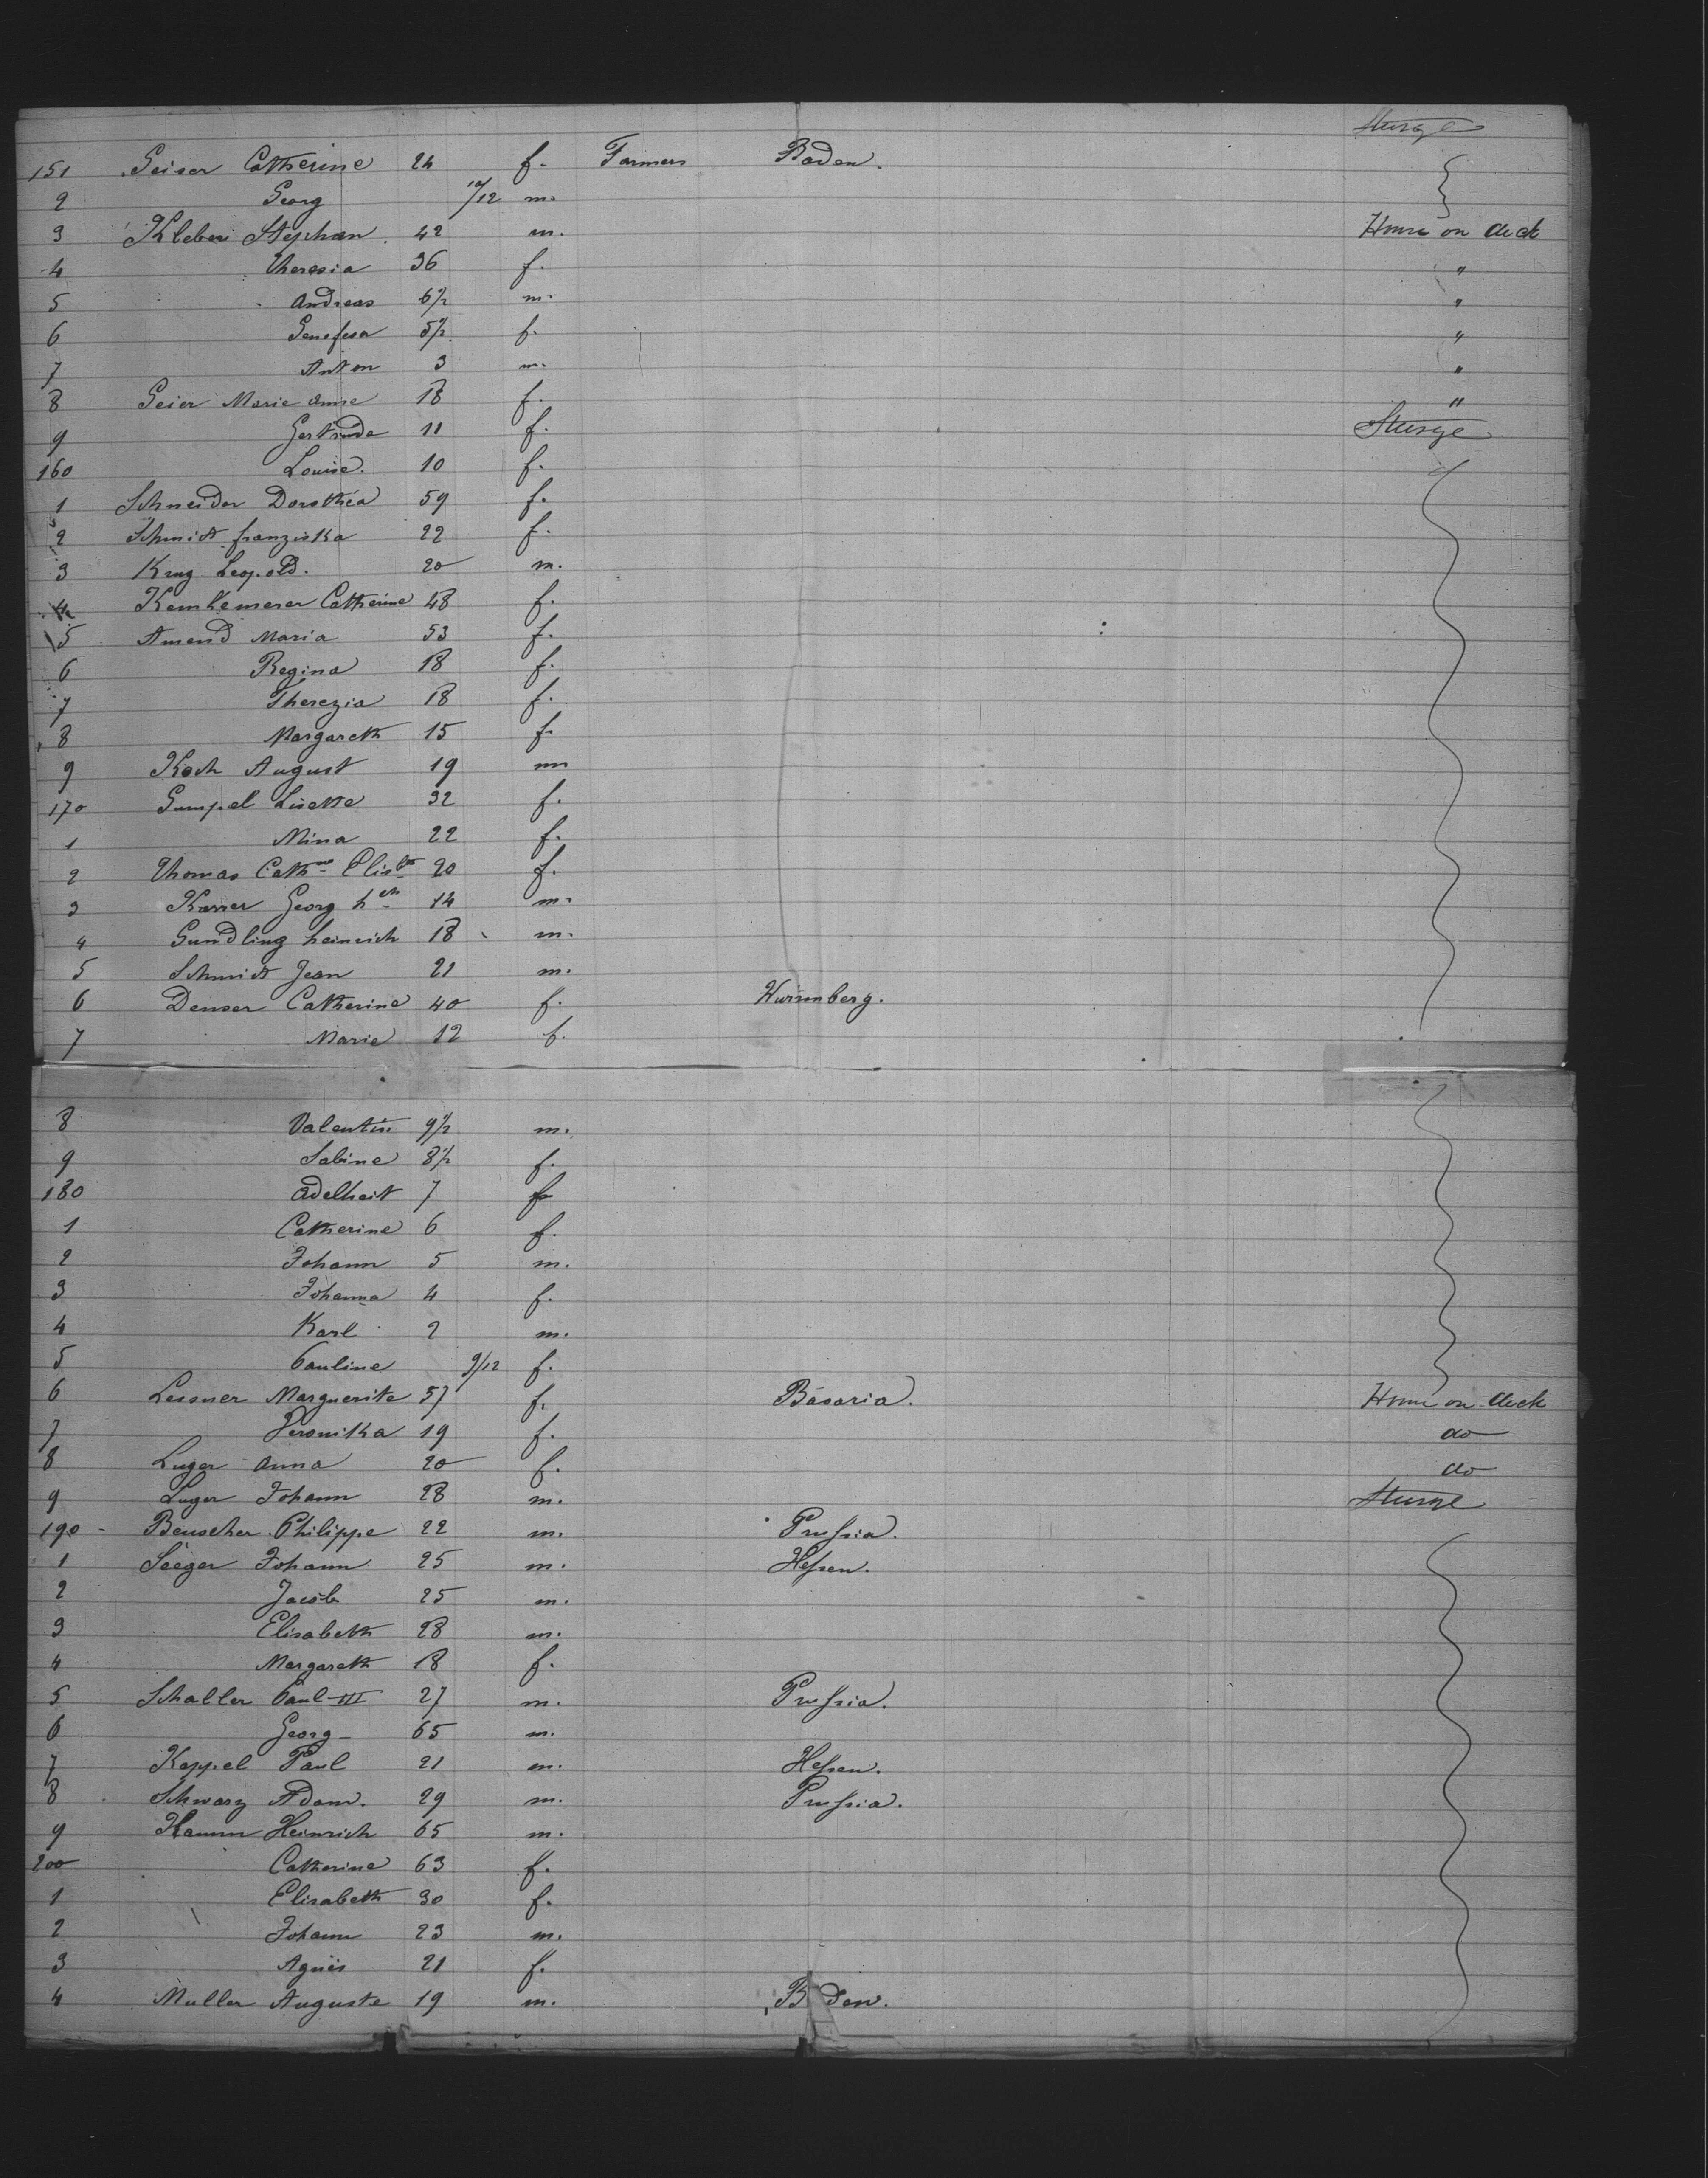 Sturge
151 Geiser Catherine 24 f. Farmers Baden.
2 Georg 10/12 m.
3 Kleber Stephan 42 m. House on deck
4 Theresia 36 f. "
5 Andreas 6 1/2 m. "
6 Genefeva 5 1/2 f. "
7 Anton 3 m. "
8 Geier Marie Anne 18 f. "
9 Gertrude 11 f. Sturge
160 Louise. 10 f.
1 Schneider Dorothea 59 f.
2 Schmidt franziska 22 f.
3 Krug Leopold. 20 m.
4 Kemkemerer Catherine 48 f.
5 Amend Maria 53 f.
6 Regina 18 f.
7 Therezia 18 f.
8 Margareth 15 f.
9 Koch August 19 m
170 Gumpel Lisette 32 f.
1 Mina 22 f.
2 Thomas Cathne Elisth 20 f.
3 Karrer Georg hch 14 m.
4 Gundling heinrich 18 m.
5 Schmidt Jean 21 m.
6 Denser Catherine 40 f. Wurmberg.
7 Marie 12 f.
8 Valentin 9 1/2 m.
9 Sabine 8 1/2 f.
180 Adelheit 7 f
1 Catherine 6 f.
2 Johann 5 m.
3 Johanna 4 f.
4 Karl 2 m.
5 Pauline 9/12 f.
6 Lessner Marguerite 57 f. Bavaria. House on deck
7 Veronika 19 f. do
8 Luger Anna 20 f. do
9 Luger Johann 28 m. Sturge
190 Beuscher Philippe 22 m. Prussia.
1 Seeger Johann 25 m. Hessen.
2 Jacob 25 m.
3 Elisabeth 28 m.
4 Margareth 18 f.
5 Schaller Paul III 27 m. Prussia.
6 Georg 65 m.
7 Keppel Paul 21 m. Hessen.
8 Schwarz Adam. 29 m. Prussia.
9 Hamm Heinrich 65 m.
200 Catherine 63 f.
1 Elisabeth 30 f.
2 Johann 23 m.
3 Agnes 21 f.
4 Muller Auguste 19 m. B den.